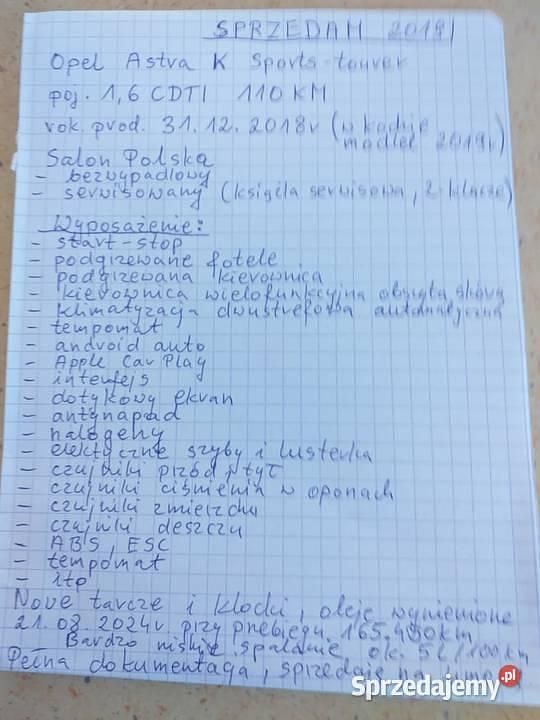 SPRZEDAM 2019
Opel Astra K Sports-tourer
poj. 1,6 CDTI 110 KM
rok. prod. 31.12.2018r (w kodzie
modlel 2019r)
Salon Polska
- bezwypadlowy
- serwisowany (książka serwisowa, 2 klucze)
Wyposażenie:
- start-stop
- podgrzewane fotele
- podgrzewana kierownica
- kierownica wielofunkcyjna obszyta skórą
- klimatyzacja dwustrefowa automatyczna
- tempomat
- android auto
- Apple Car Play
- interfejs
- dotykowy ekran
- antynapad
- halogeny
- elektryczne szyby i lusterka
- czujniki przód i tył
- czujniki ciśnienia w oponach
- czujniki zmierzchu
- czujniki deszczu
- ABS, ESC
- tempomat
- itp
Nowe tarcze i klocki, oleje wymienione
21.08.2024r przy przebiegu 165.400km
Bardzo niskie spalanie ok. 5l/100km
Pełna dokumentacja, sprzedaję na
Sprzedajemy.pl